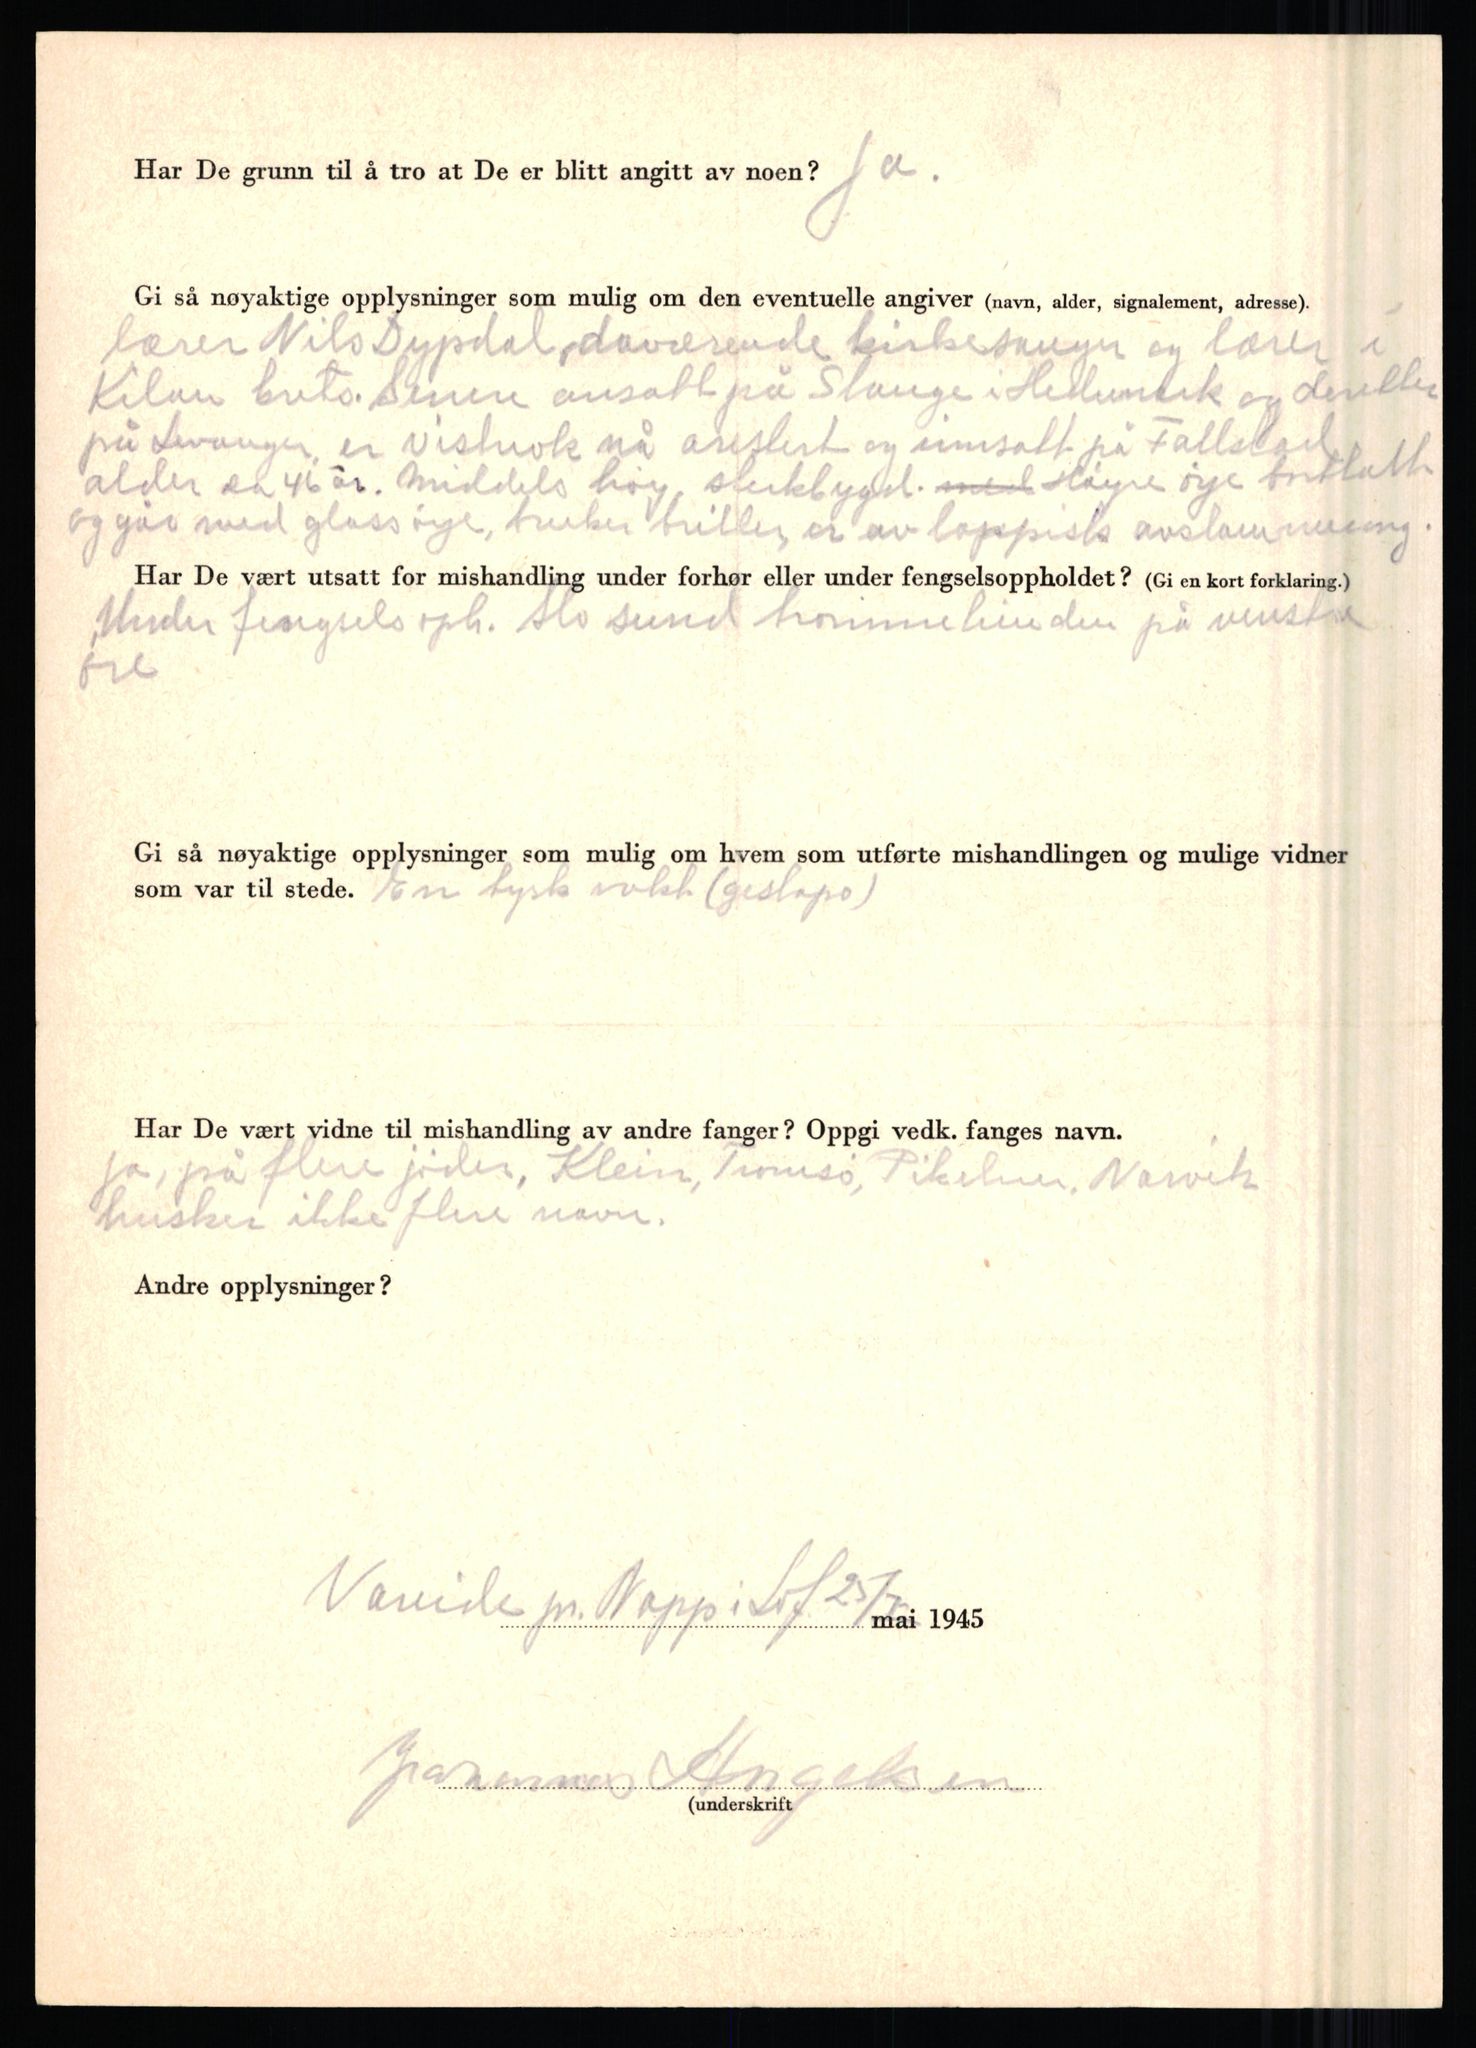 Har De grunn til å tro at De er blitt angitt av noen? Ja.
Gi så nøyaktige opplysninger som mulig om den eventuelle angiver (navn, alder, signalement, adresse).
lærer Nils Dypdal, daværende kirkesanger og lærer i
Kilan krets. Senere ansatt på Stange i Hedemark og deretter
på Levanger, er vistnok nå arestert og innsatt på Fallstad
alder ca 46 år. Middels høy, sterkbygd. med Höyre öye
og går med glassöye, bruker briller, er av lappisk avstamning.
Har De vært utsatt for mishandling under forhør eller under fengselsoppholdet? (Gi en kort forklaring.)
Under fengsels oph. slo sund trommehinden på venstre
öre
Gi så nøyaktige opplysninger som mulig om hvem som utførte mishandlingen og mulige vidner
som var til stede. En tysk vakt (gestapo)
Har De vært vidne til mishandling av andre fanger? Oppgi vedk. fanges navn.
Ja, på flere jöder, Klein, Tromsö, Pikelner, Narvik
husker ikke flere navn.
Andre opplysninger?
pr. Napp i Lof. 25/ mai 1945
Johannes Angelsen
(underskrift